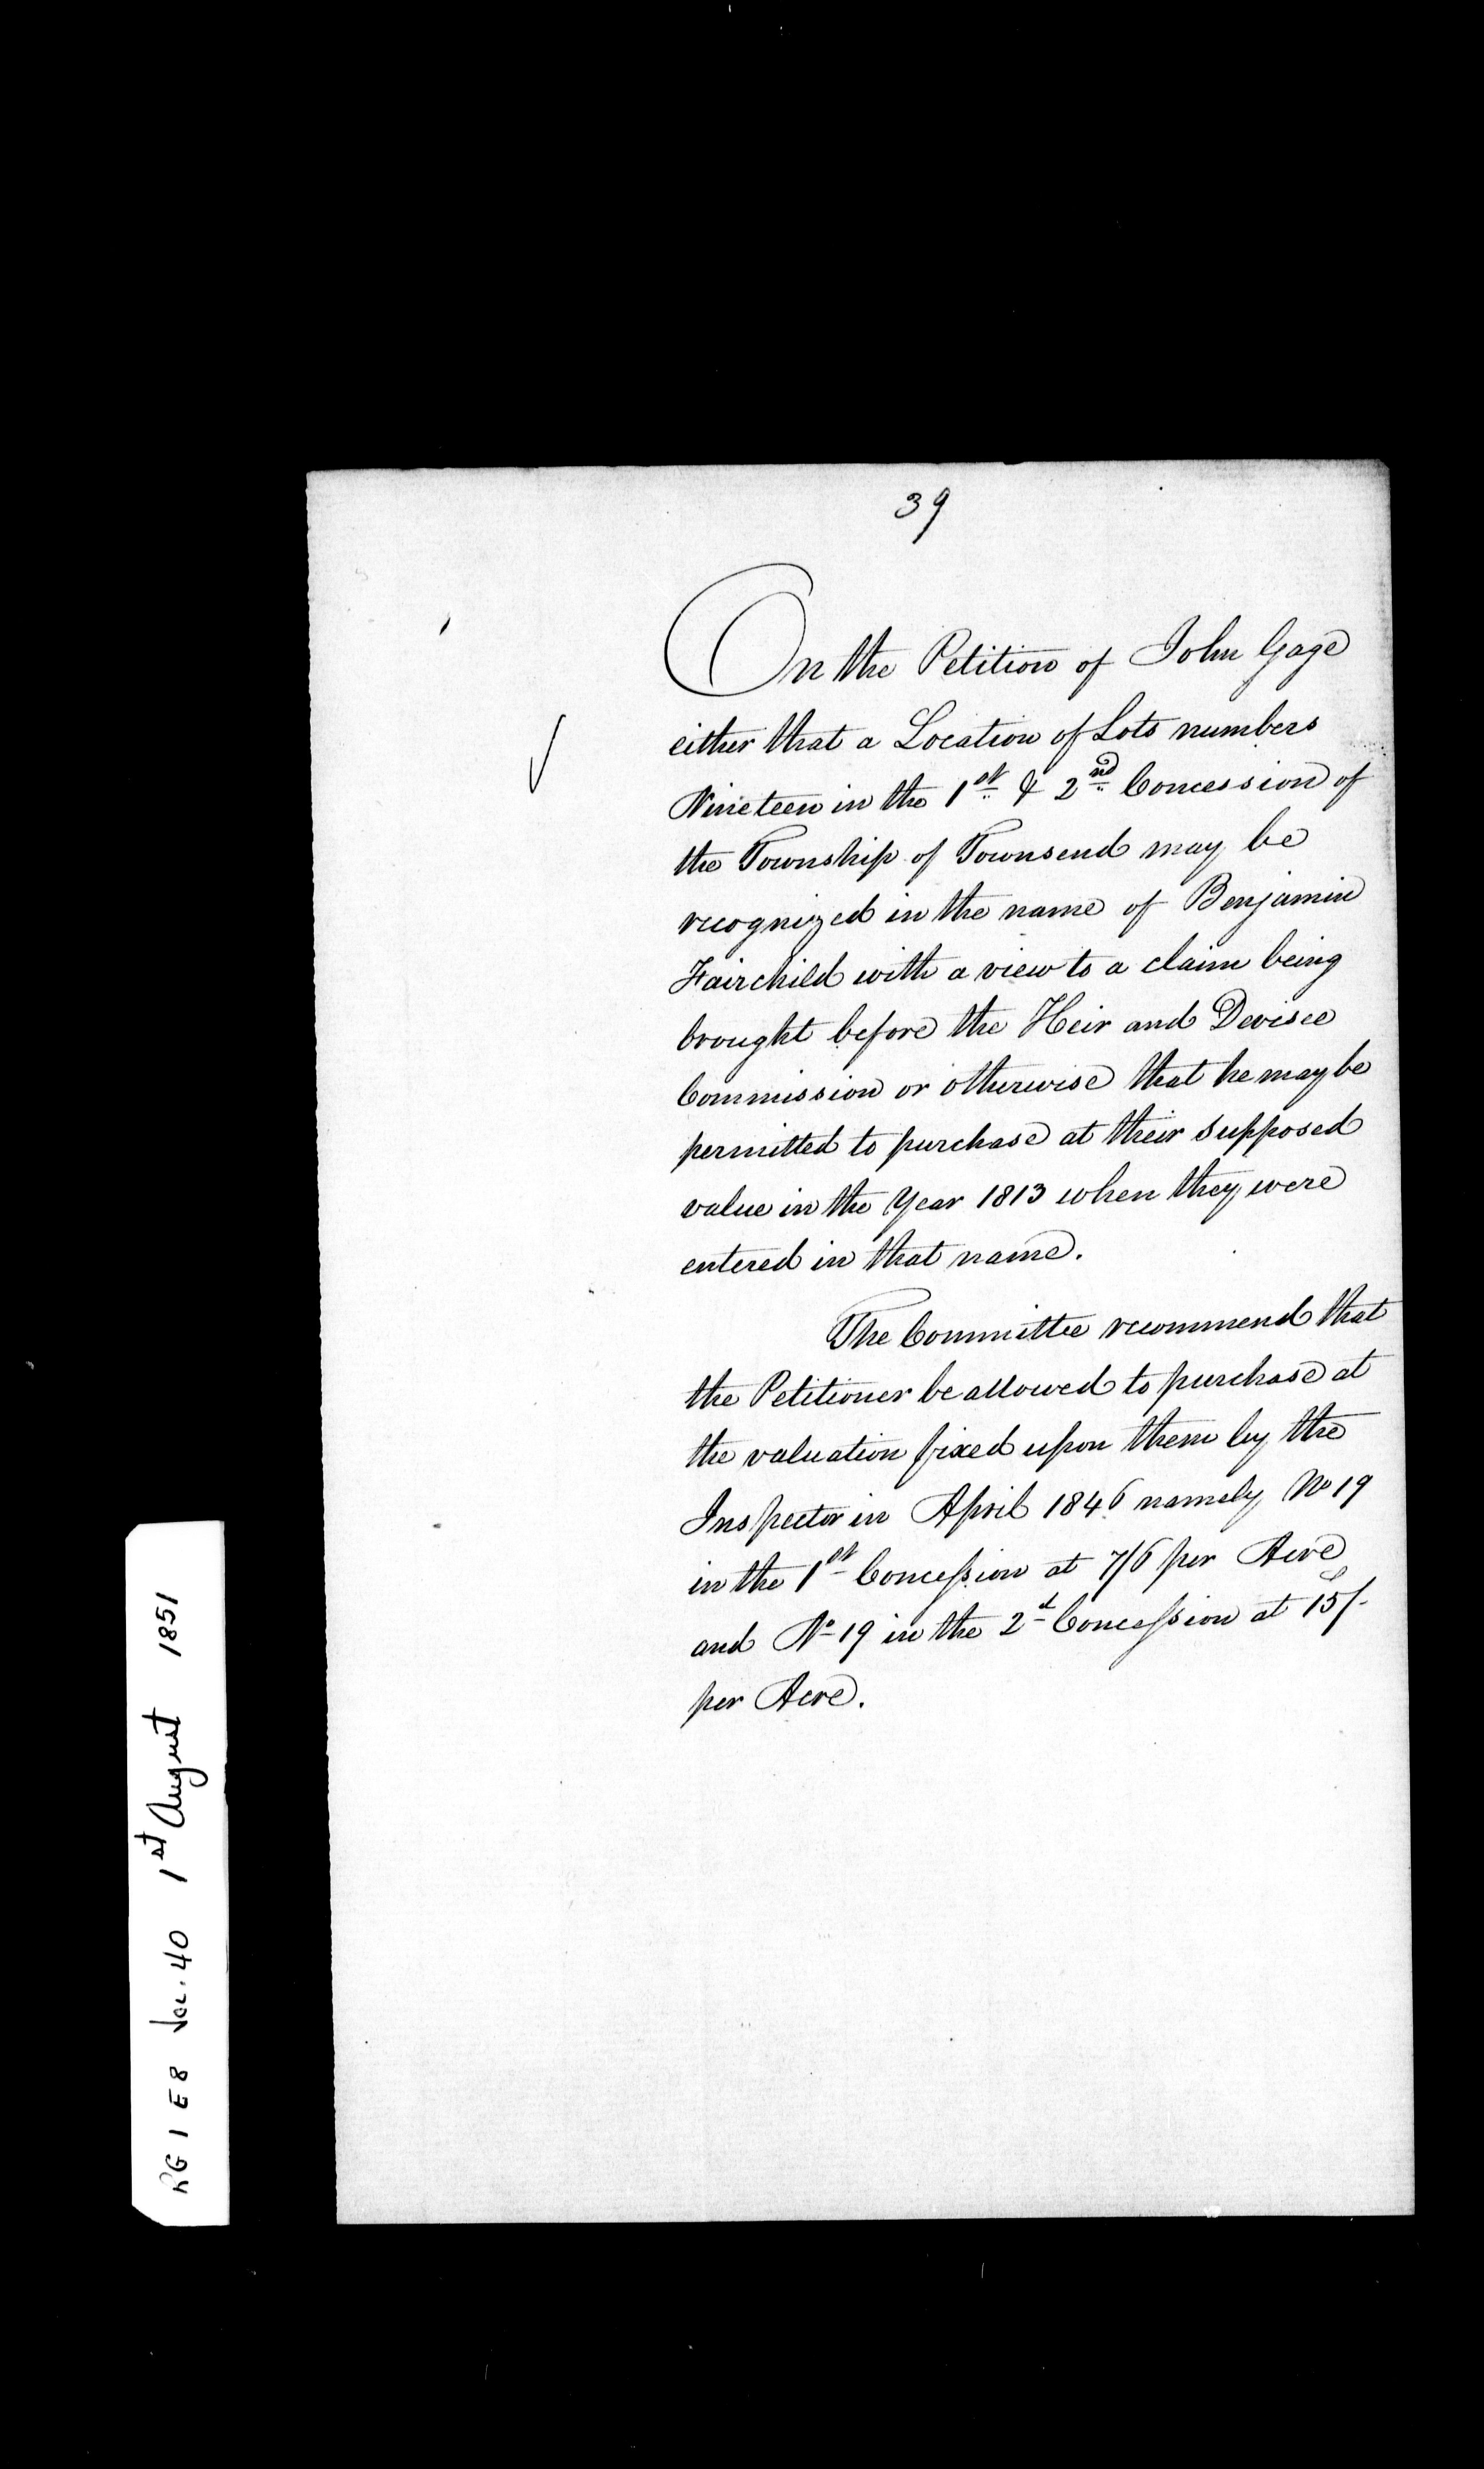 39
On the Petition of John Gage
either that a Location of Lots numbers
Nineteen in the 1st & 2nd Concession of
the Township of Townsend may be
recognized in the name of Benjamin
Fairchild with a view to a claim being
brought before the Heir and Devisee
Commission or otherwise that he may be
permitted to purchase at their supposed
value in the Year 1813 when they were
entered in that name.
The Committee recommend that
the Petitioner be allowed to purchase at
the valuation fixed upon them by the
Inspector in April 1846 namely No 19
in the 1st Concession at 7/6 per Acre
and No 19 in the 2d Concession at 15/-
per Acre.
RG 1 E8 Vol. 40 1st August 1851